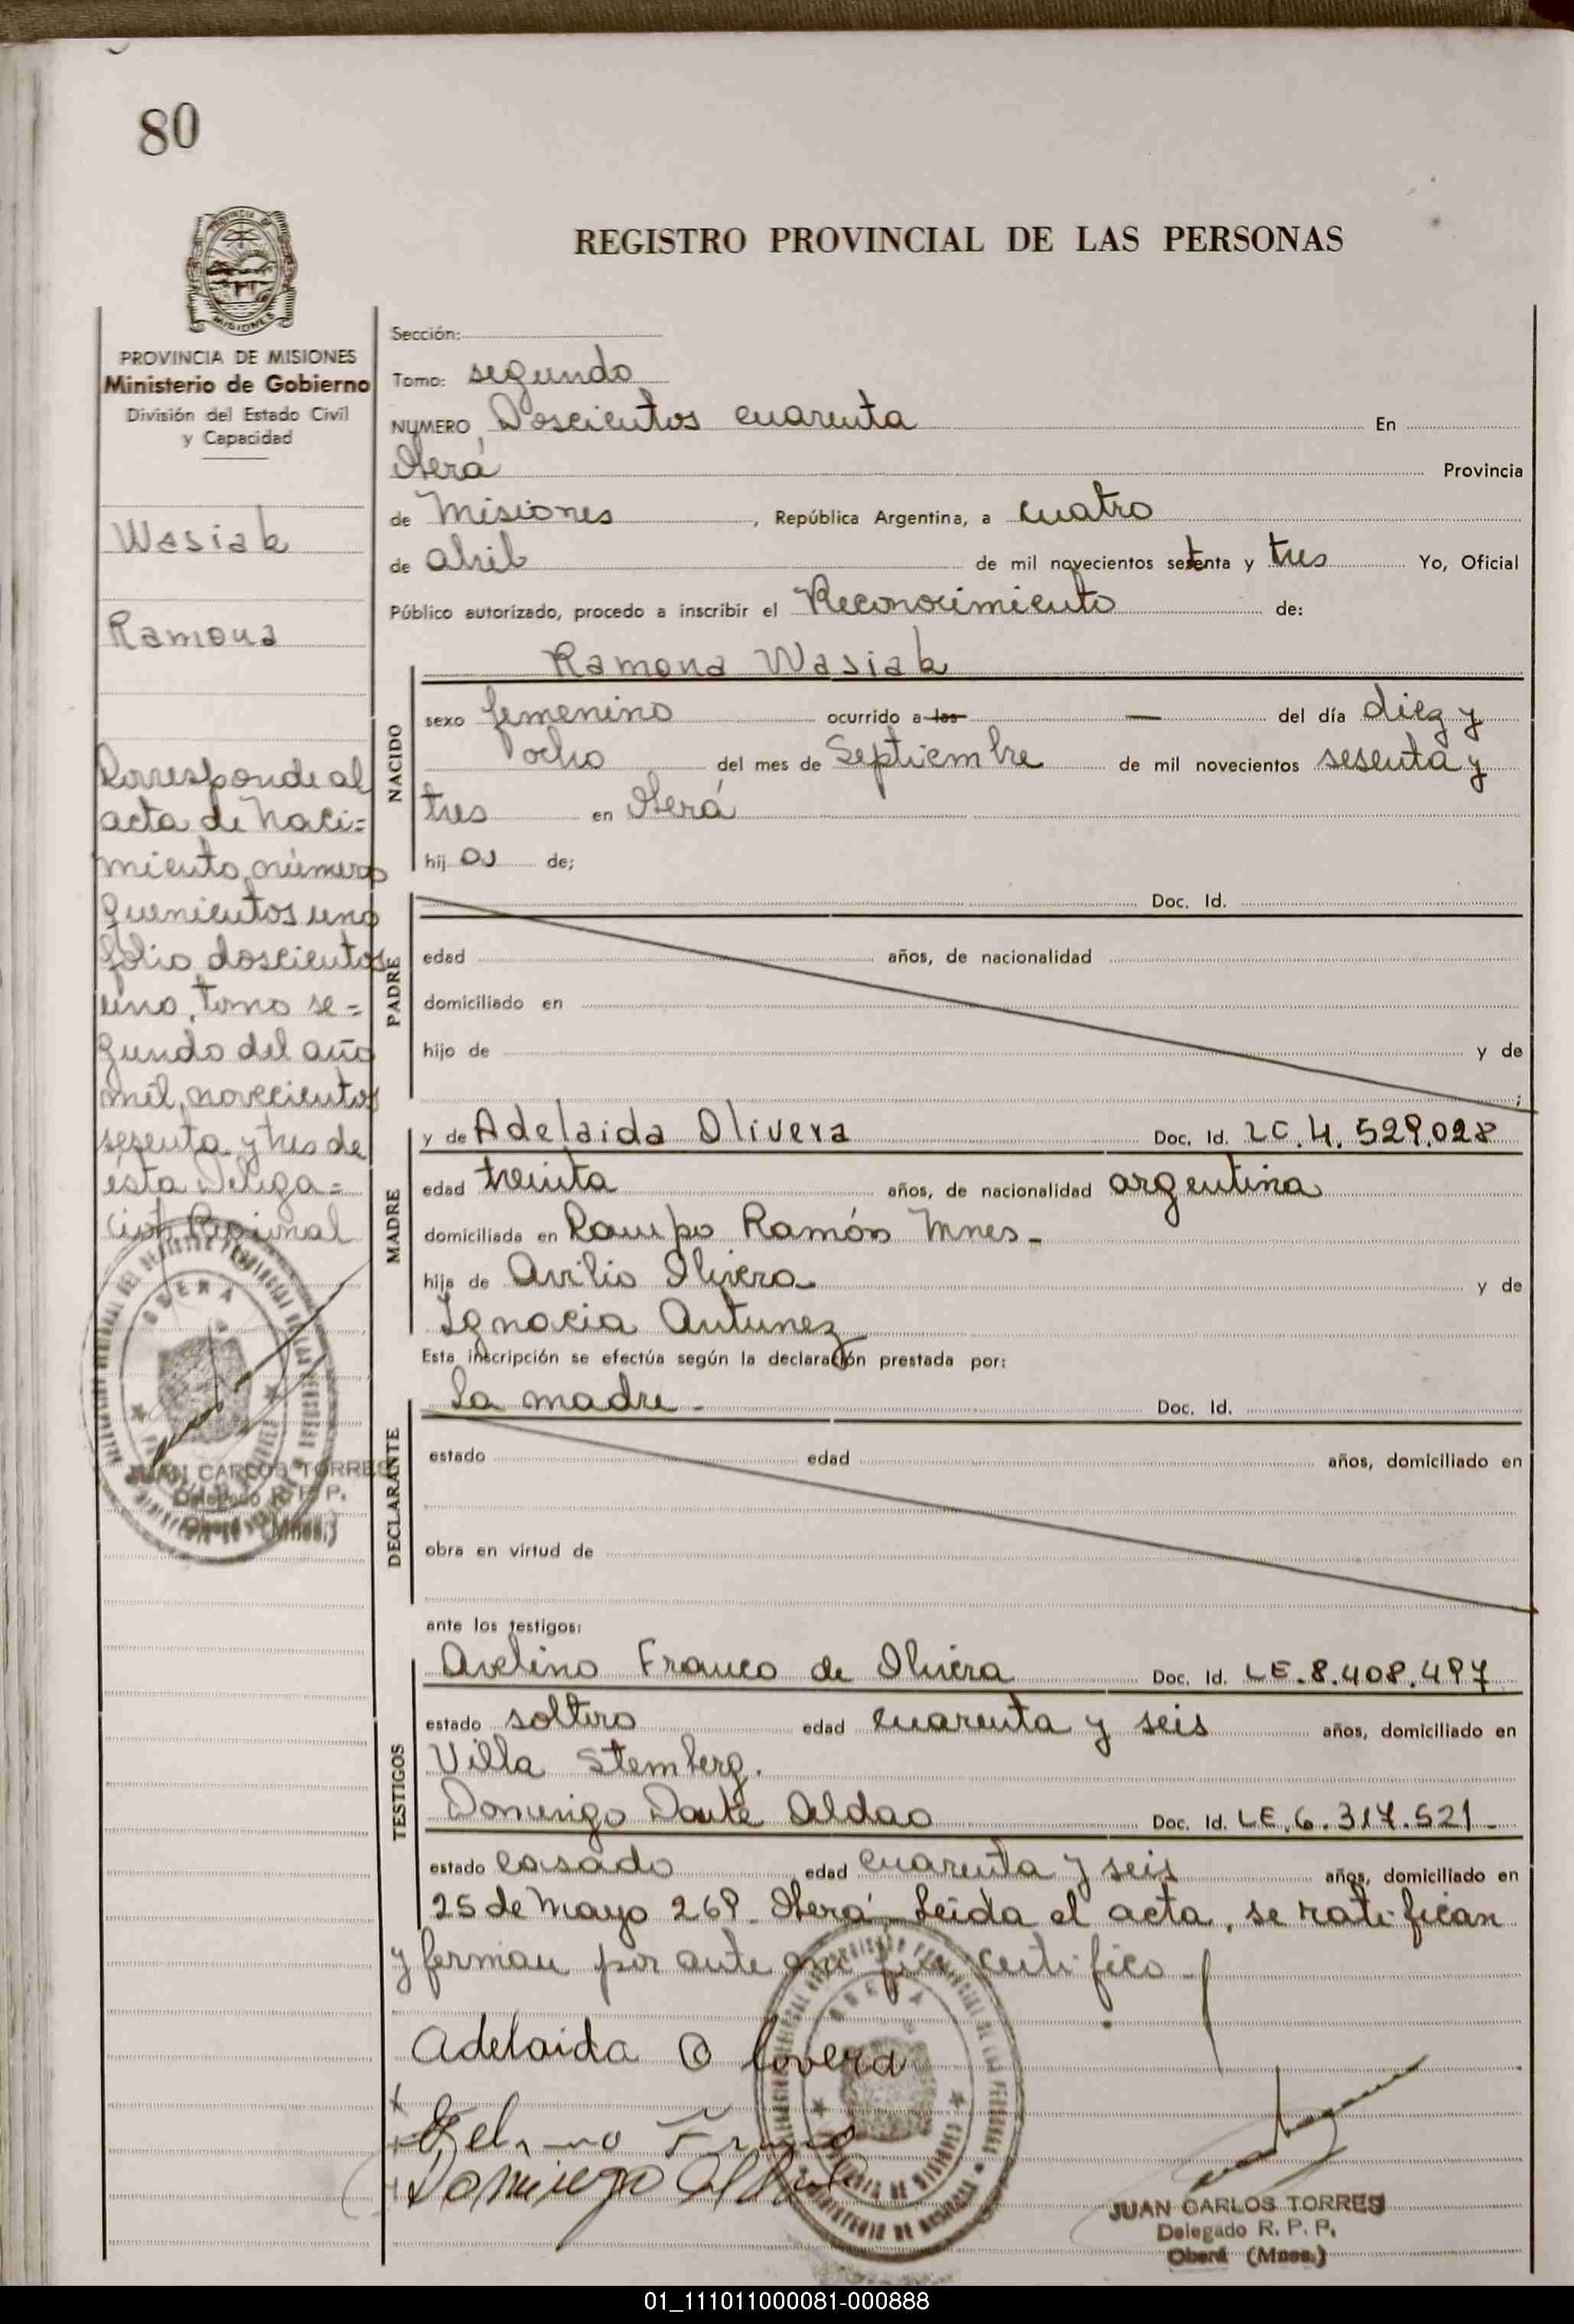 80
PROVINCIA DE
MISIONES
REGISTRO PROVINCIAL DE LAS PERSONAS
PROVINCIA DE MISIONES
Ministerio de Gobierno
División del Estado Civil
y Capacidad
Wasiak
Ramona
Corresponde al
acta de Naci=
miento, número
quinientos uno
folio doscientos
uno, tomo se=
gundo del año
mil novecientos
sesenta y tres de
ésta Delega=
ción Regional
OBERA
JUAN CARLOS TORRES
Delegado R. P. P.
Oberá (Mnes.)
Sección:
Tomo: segundo
NUMERO Doscientos cuarenta En
Oberá Provincia
de Misiones, República Argentina, a cuatro
de abril de mil novecientos setenta y tres Yo, Oficial
Público autorizado, procedo a inscribir el Reconocimiento de:
Ramona Wasiak
NACIDO
sexo femenino ocurrido a las — del día diez y
ocho del mes de Septiembre de mil novecientos sesenta y
tres en Oberá
hij a de;
PADRE
Doc. Id.
edad años, de nacionalidad
domiciliado en
hijo de y de
;
MADRE
y de Adelaida Olivera Doc. Id. LC. 4. 529.028
edad treinta años, de nacionalidad argentina
domiciliada en Campo Ramón Mnes-
hija de Avilio Olivera y de
Ignacia Antunez
Esta inscripción se efectúa según la declaración prestada por:
DECLARANTE
La madre - Doc. Id.
estado edad años, domiciliado en
obra en virtud de
ante los testigos:
TESTIGOS
Avelino Franco de Olivera Doc. Id. LE. 8.408.497
estado soltero edad cuarenta y seis años, domiciliado en
Villa Stemberg.
Domingo Dante Aldao Doc. Id. LE. 6.317.521-
estado casado edad cuarenta y seis años, domiciliado en
25 de Mayo 269- Oberá- Leída el acta, se ratifican
y firman por ante mí que certifico -
OBERA
Adelaida Olovera
Domiego
JUAN CARLOS TORRES
Delegado R. P. P.
Oberá (Mnes.)
01_111011000081-000888